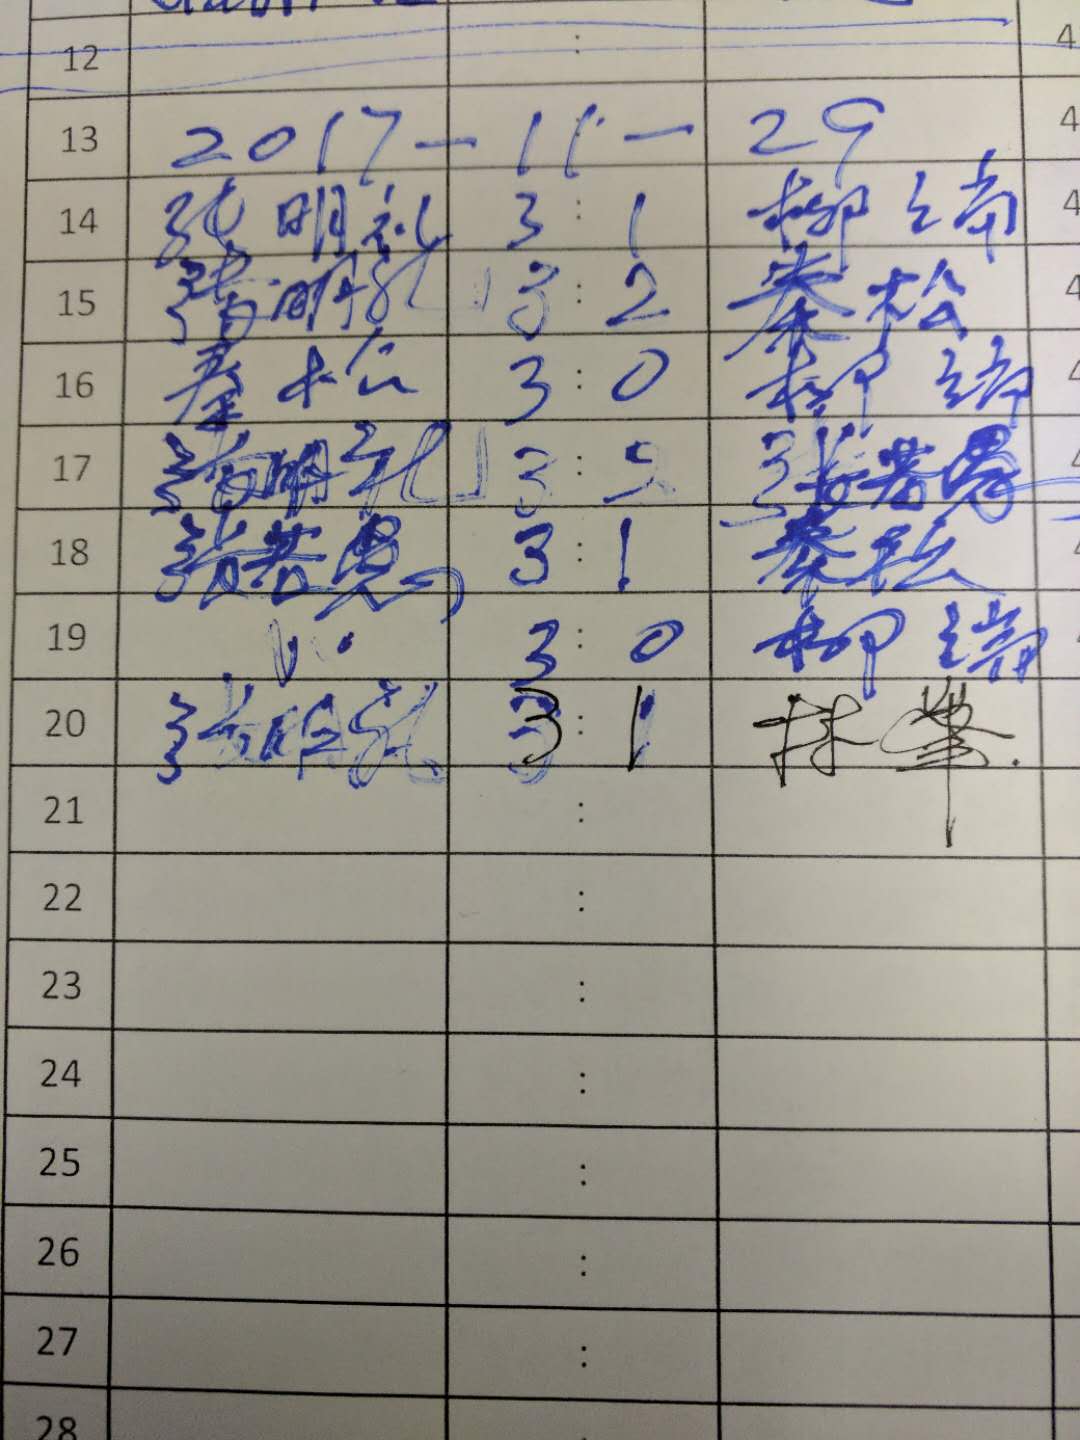 12 : 4
13 2017-11-29 4
14 张明礼 3 : 1 柳之端 4
15 张明礼 3 : 2 秦松 4
16 秦松 3 : 0 柳端 4
17 张明礼 3 : 2 张若愚 4
18 张若愚 3 : 1 秦松 4
19 3 : 0 柳端
20 张明礼 3 : 1 林
21 :
22 :
23 :
24 :
25 :
26 :
27 :
28